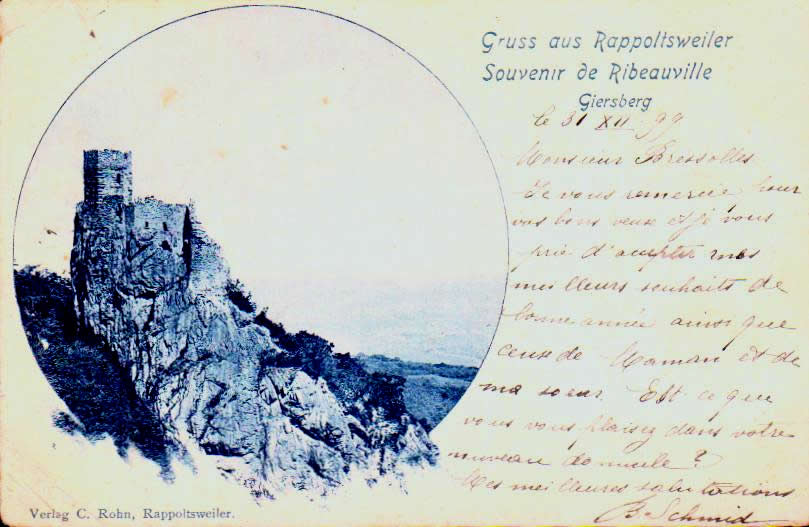 Gruss aus Rappoltsweiler
Souvenir de Ribeauville
Giersberg
le 31 XII 99
Monsieur Bressolles
Je vous remercie pour
vos bons veux et je vous
prie d'accepter mes
meilleurs souhaits de
bonne année ainsi que
ceux de Maman et de
ma soeur. Est ce que
vous vous plaisez dans votre
nouveau domicile ?
Mes meilleures salutations
B. Schmid
Verlag C. Rohn, Rappoltsweiler.